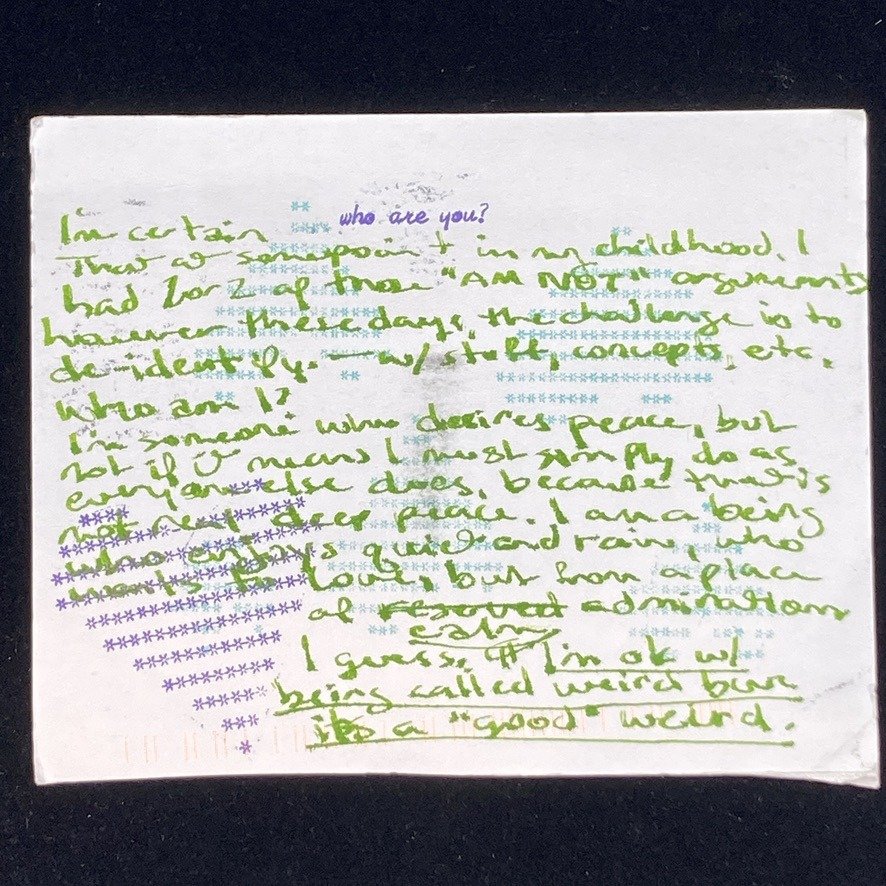 who are you?
I'm certain
That at somepoint in my childhood, I
had 1 or 2 of those "AM NOT" arguments
however these days, the challenge is to
de-identify. — w/ stuff, concepts, etc.
Who am I?
I'm someone who desires peace, but
not if it means I must simply do as
everyone else does, because that is
not real deep peace. I am a being
who enjoys quiet and rain, who
wants to love, but from a place
of admiration
calm
I guess, I'm ok w/
being called weird but
its a "good" weird.